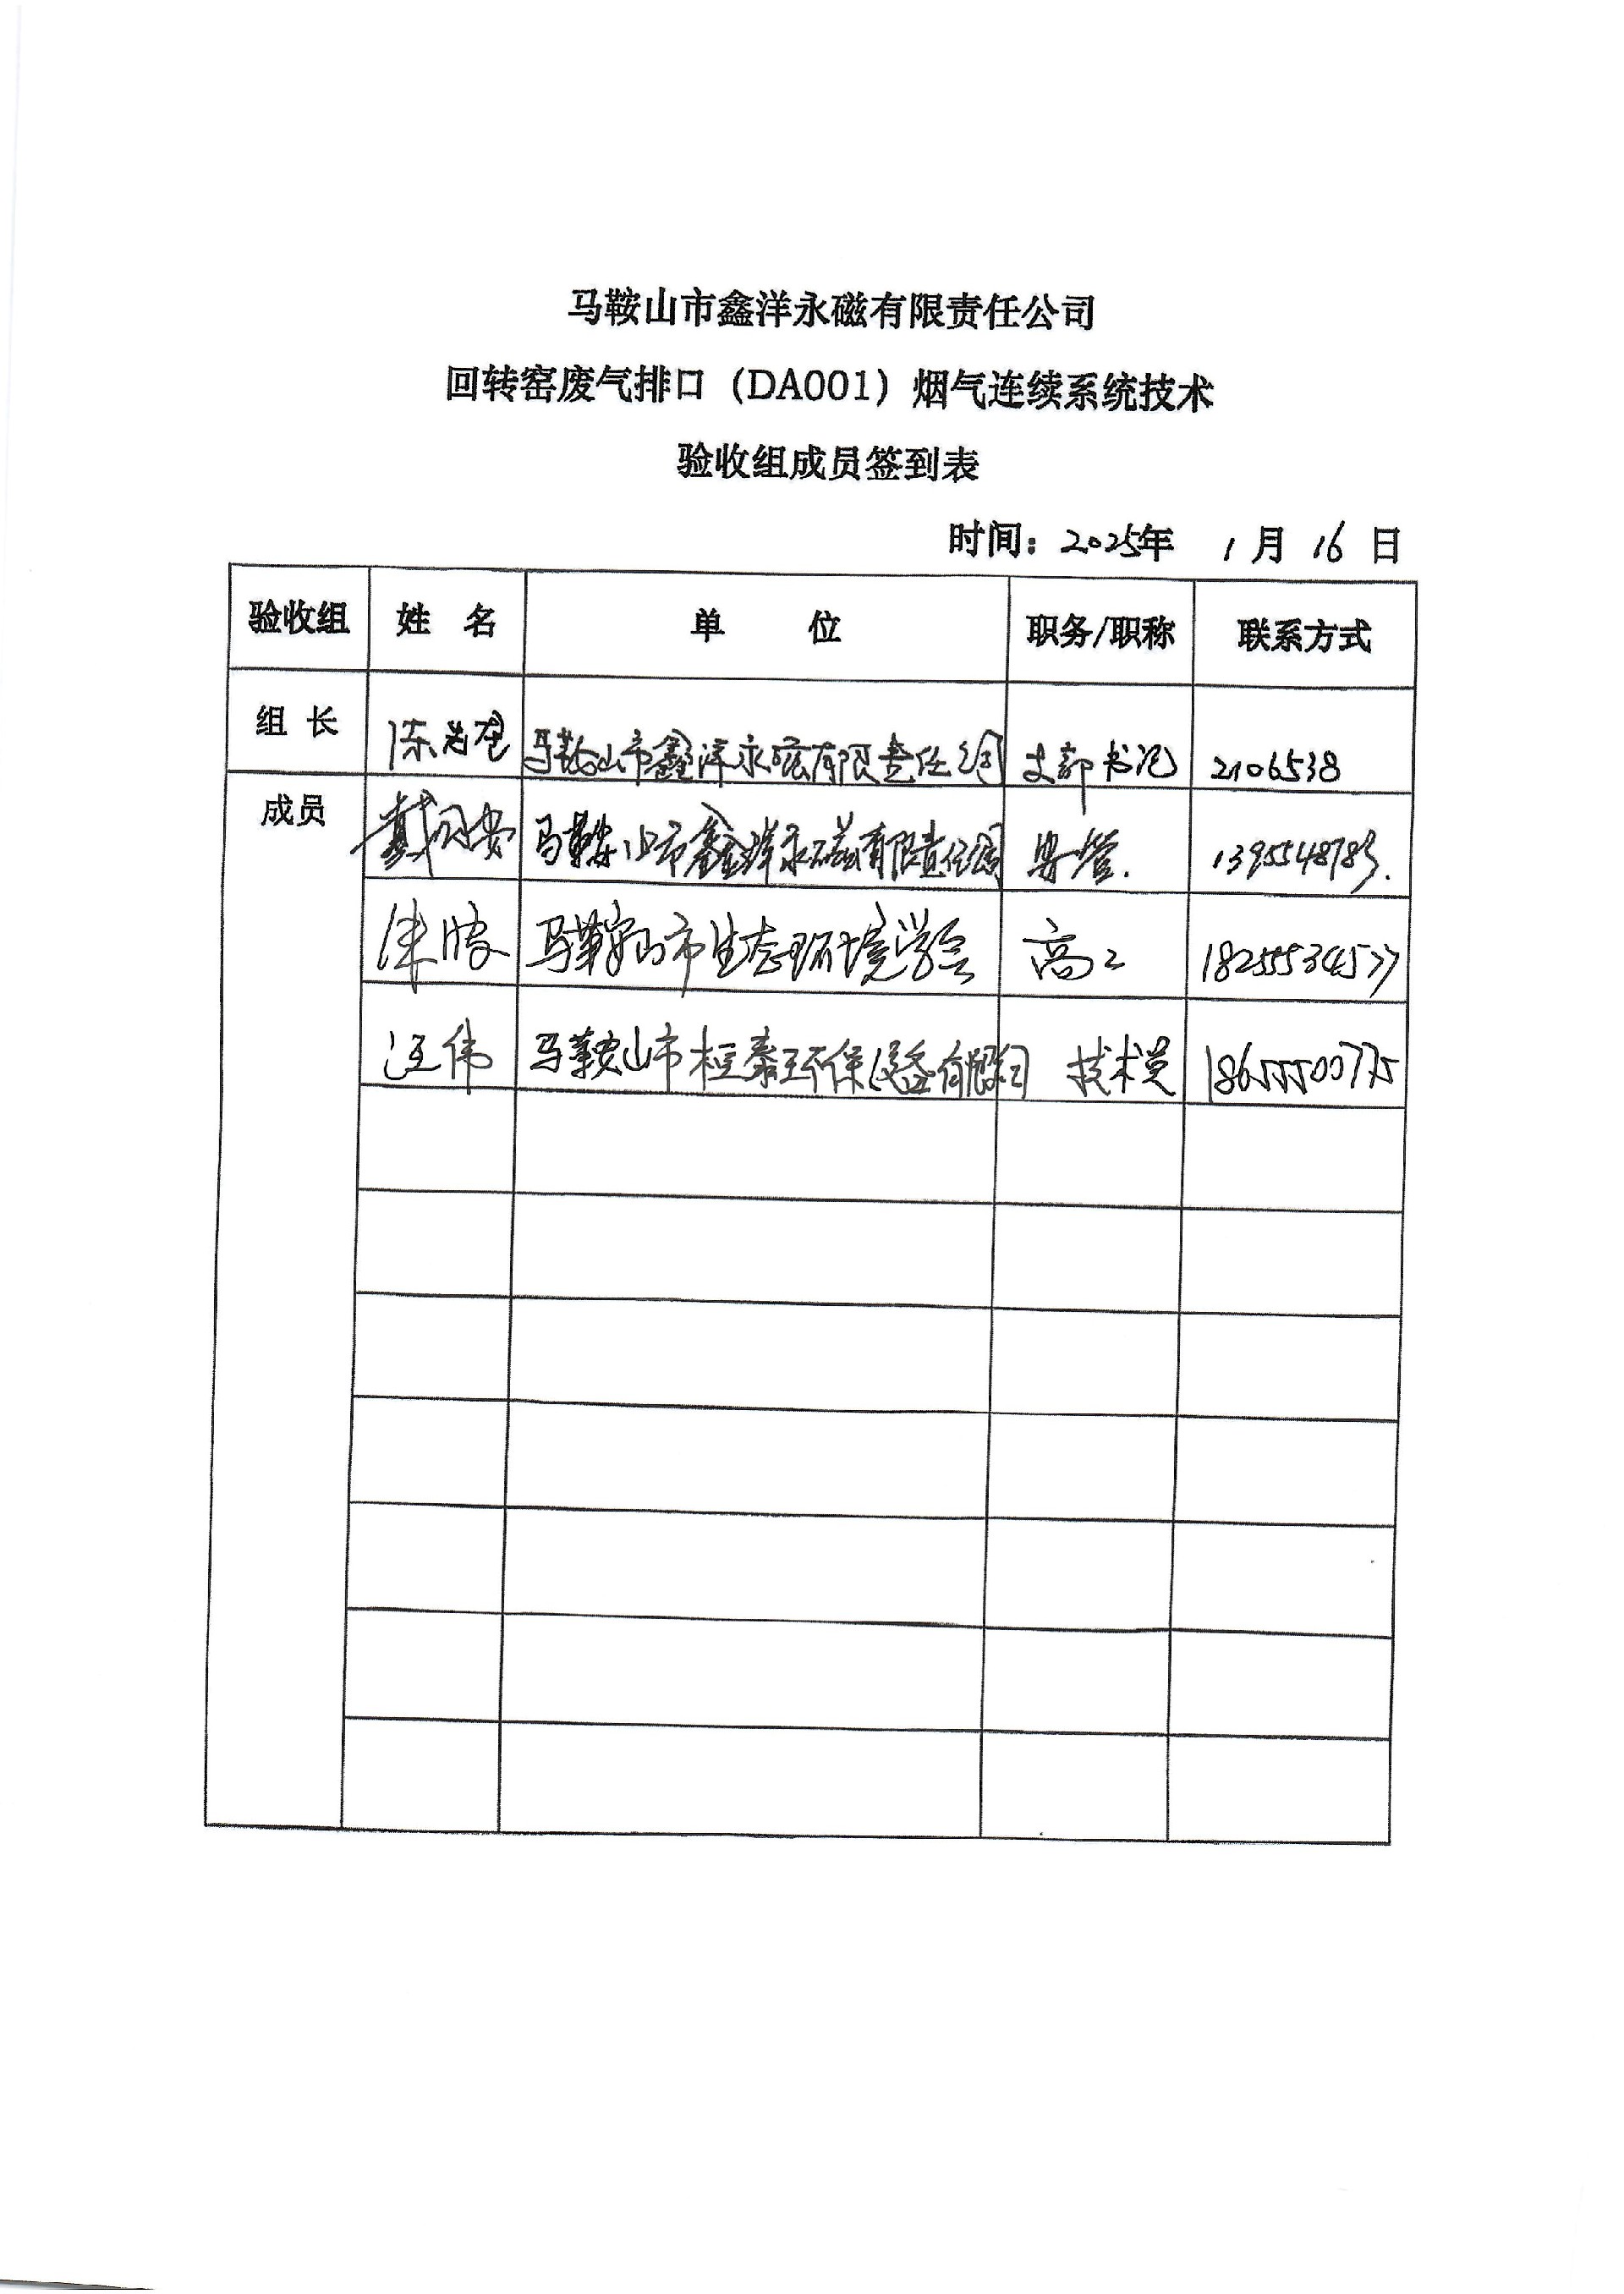 马鞍山市鑫洋永磁有限责任公司
回转窑废气排口（DA001）烟气连续系统技术
验收组成员签到表
时间：2025年 1月 16日
验收组 姓 名 单 位 职务/职称 联系方式
组 长 陈 马鞍山市鑫洋永磁有限责任公司 支部书记 2106538
成员 戴 马鞍山市鑫洋永磁有限责任公司 安管. 
马鞍山市生态环境学会 高工 18255534577
汪伟 马鞍山市桓泰环保设备有限公司 技术员 18655500775